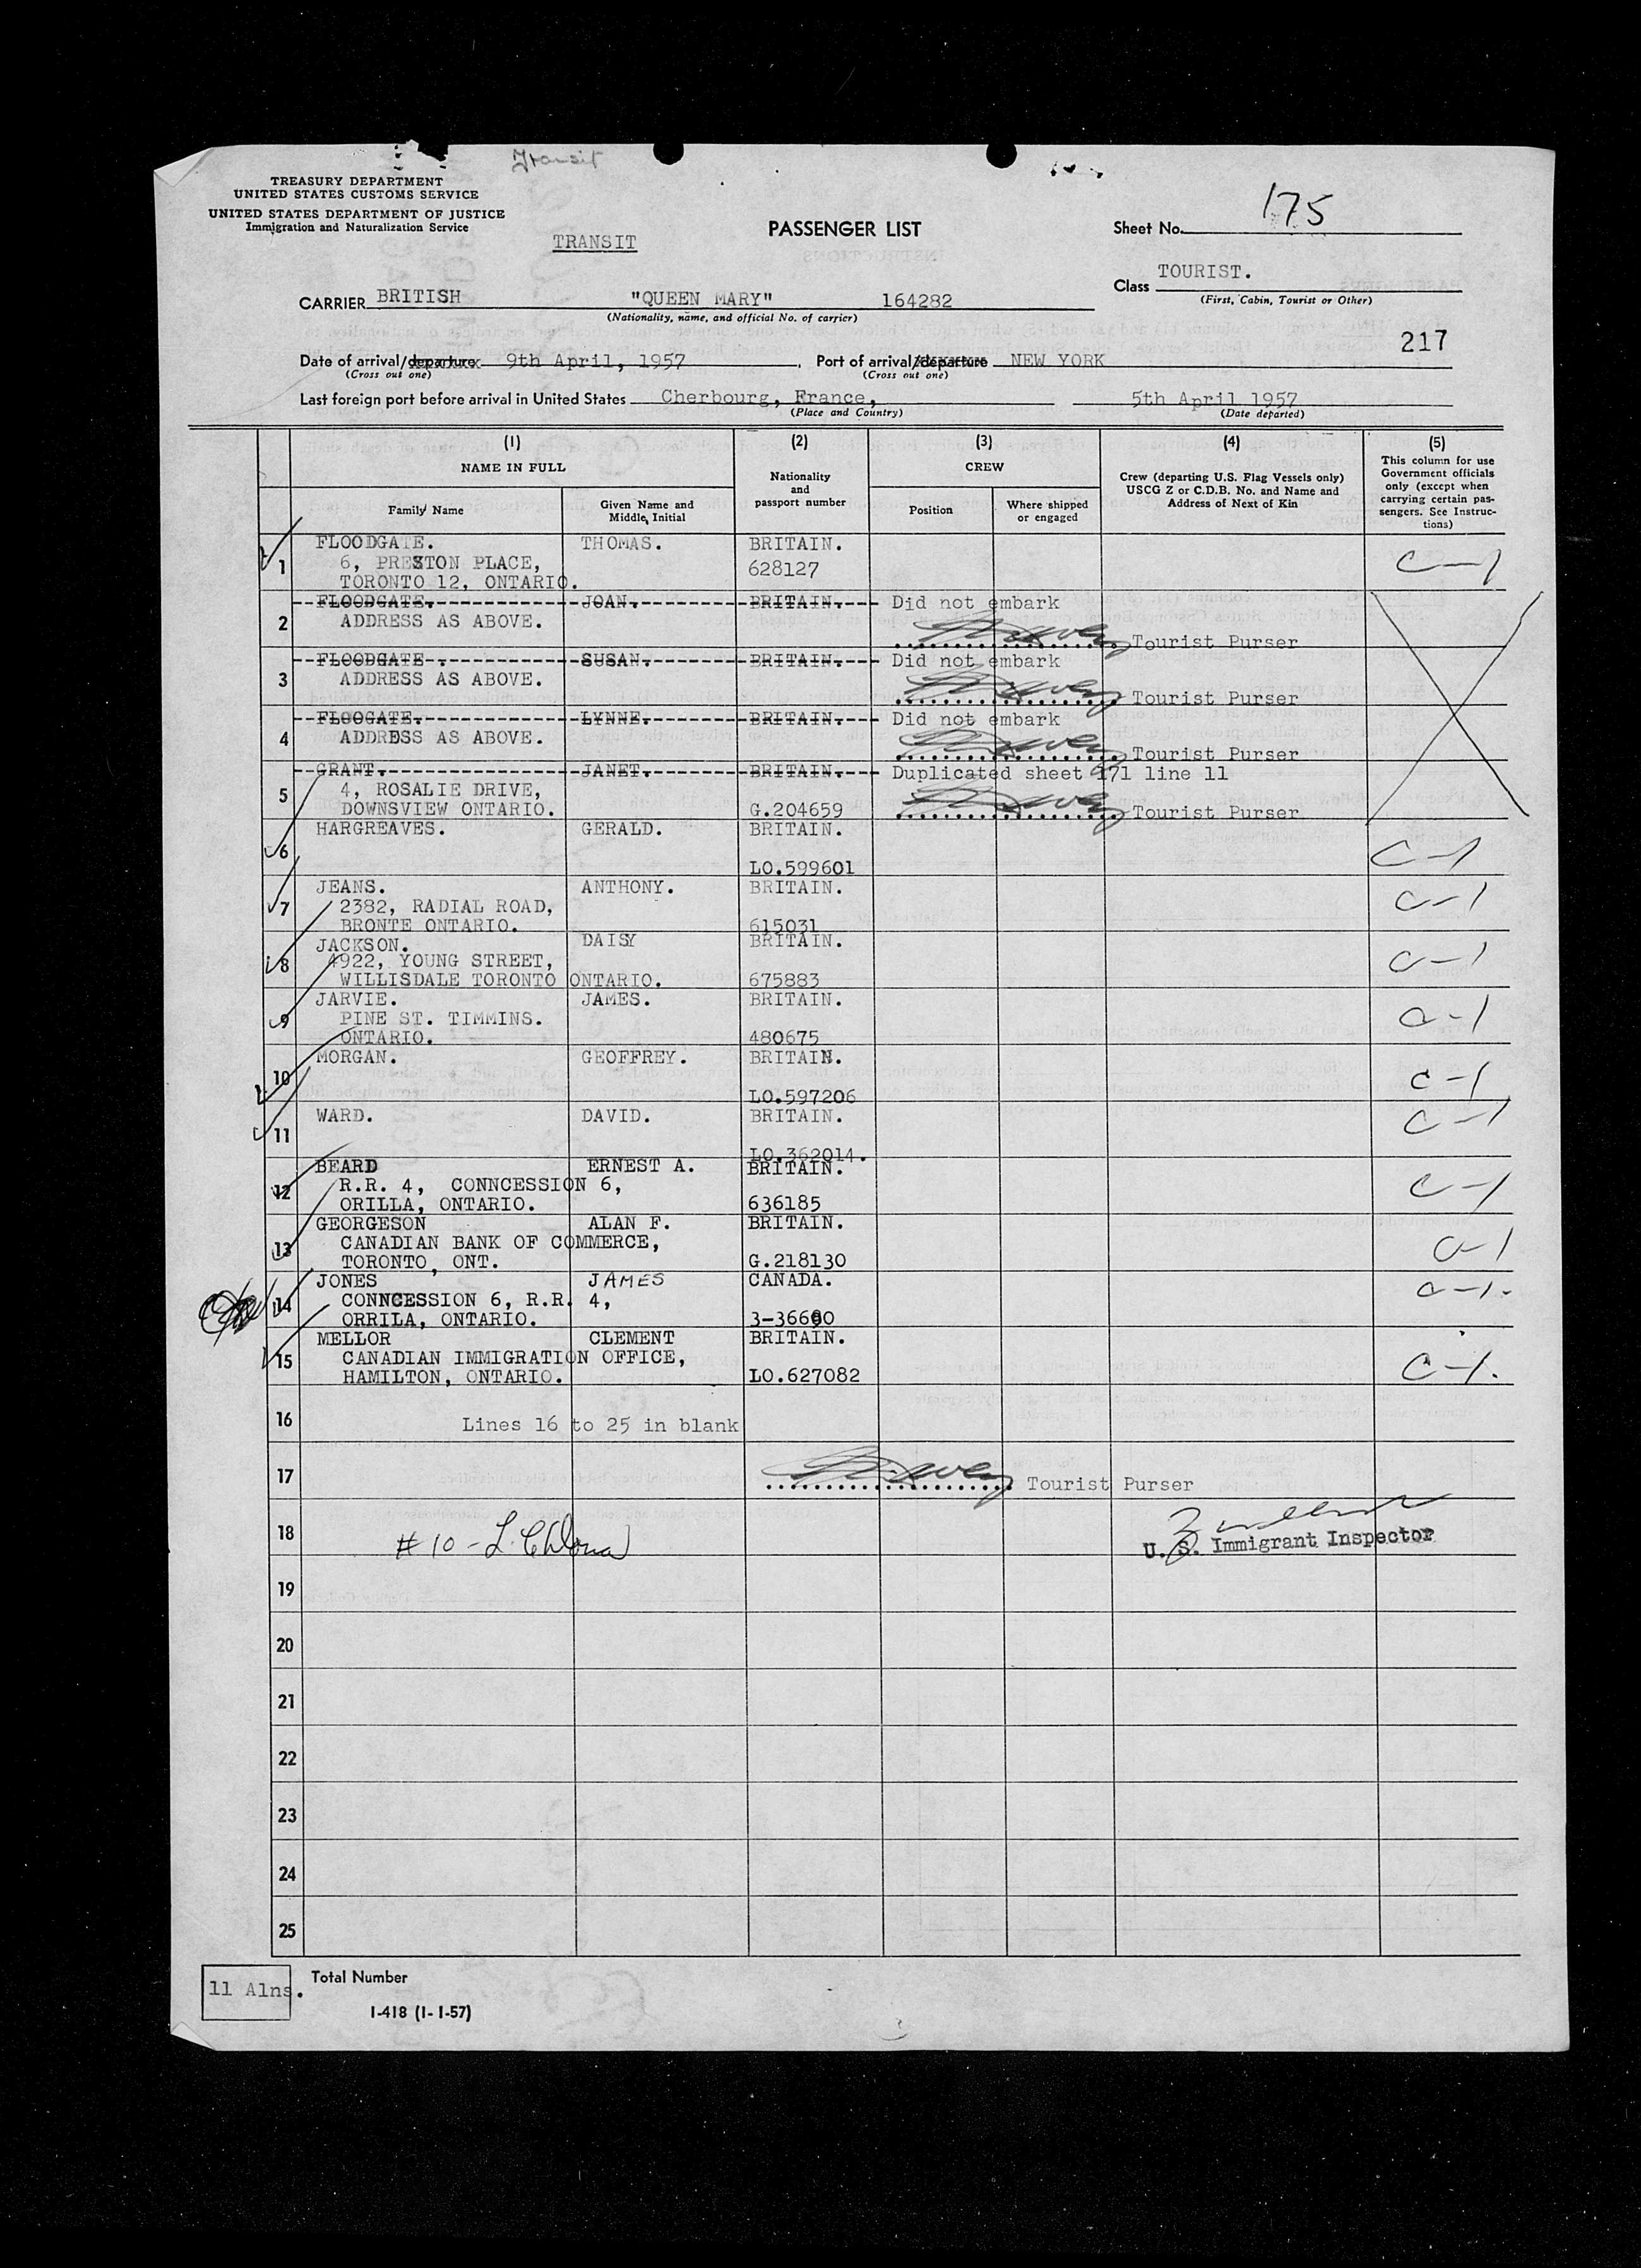 Transit
TREASURY DEPARTMENT
UNITED STATES CUSTOMS SERVICE
UNITED STATES DEPARTMENT OF JUSTICE
Immigration and Naturalization Service
TRANSIT
PASSENGER LIST
Sheet No. 175
Class TOURIST.
(First, Cabin, Tourist or Other)
CARRIER BRITISH "QUEEN MARY" 164282
(Nationality, name, and official No. of carrier)
217
Date of arrival/departure 9th April, 1957, Port of arrival/departure NEW YORK
(Cross out one) (Cross out one)
Last foreign port before arrival in United States Cherbourg, France, 5th April 1957
(Place and Country) (Date departed)
(1) (2) (3) (4) (5)
NAME IN FULL
Family Name
Given Name and Middle Initial
Nationality and passport number
CREW
Position
Where shipped or engaged
Crew (departing U.S. Flag Vessels only) USCG Z or C.D.B. No. and Name and Address of Next of Kin
This column for use Government officials only (except when carrying certain passengers. See Instructions)
1 FLOODGATE. THOMAS. BRITAIN. C-1
6, PRESTON PLACE, 628127
TORONTO 12, ONTARIO.
2 FLOODGATE. JOAN. BRITAIN. Did not embark
ADDRESS AS ABOVE.
Tourist Purser
3 FLOODGATE. SUSAN. BRITAIN. Did not embark
ADDRESS AS ABOVE.
Tourist Purser
4 FLOOGATE. LYNNE. BRITAIN. Did not embark
ADDRESS AS ABOVE.
Tourist Purser
5 GRANT. JANET. BRITAIN. Duplicated sheet 171 line 11
4, ROSALIE DRIVE,
DOWNSVIEW ONTARIO. G.204659 Tourist Purser
6 HARGREAVES. GERALD. BRITAIN. C-1
LO.599601
7 JEANS. ANTHONY. BRITAIN. C-1
2382, RADIAL ROAD,
BRONTE ONTARIO. 615031
8 JACKSON. DAISY BRITAIN. C-1
4922, YOUNG STREET,
WILLISDALE TORONTO ONTARIO. 675883
9 JARVIE. JAMES. BRITAIN. C-1
PINE ST. TIMMINS.
ONTARIO. 480675
10 MORGAN. GEOFFREY. BRITAIN. C-1
LO.597206
11 WARD. DAVID. BRITAIN. C-1
LO.362014.
12 BEARD ERNEST A. BRITAIN. C-1
R.R. 4, CONNCESSION 6,
ORILLA, ONTARIO. 636185
13 GEORGESON ALAN F. BRITAIN. C-1
CANADIAN BANK OF COMMERCE,
TORONTO, ONT. G.218130
14 JONES JAMES CANADA. C-1.
CONNCESSION 6, R.R. 4,
ORRILA, ONTARIO. 3-36600
15 MELLOR CLEMENT BRITAIN. C-1.
CANADIAN IMMIGRATION OFFICE,
HAMILTON, ONTARIO. LO.627082
16 Lines 16 to 25 in blank
17 Tourist Purser
18 # 10 - U. S. Immigrant Inspector
19
20
21
22
23
24
25
11 Alns. Total Number
I-418 (1-1-57)